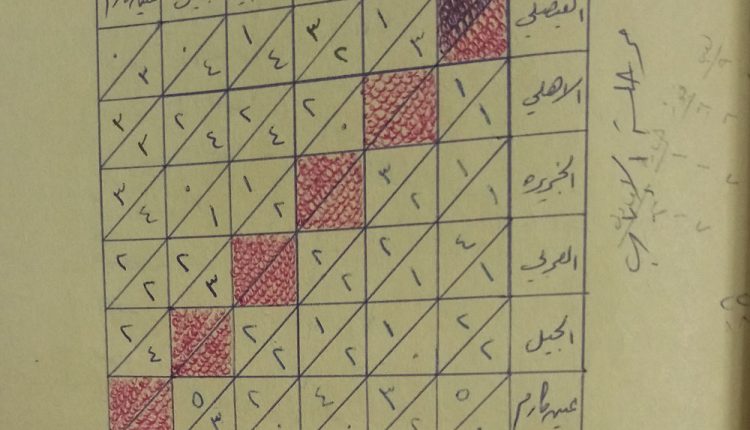 الفيصلي ١ ٣ ٣ ٢ ١ ٤ ٠ ٤ ٠ ٣
الاهلي ١ ١ ٢ ٠ ٢ ٤ ٢ ٤ ٣ ٣
الجزيره ١ ١ ٣ ٢ ١ ٢ ٠ ١ ٣ ٤
العربي ٤ ١ ٢ ١ ٢ ٢ ٢ ٣ ٢ ٢
الجيل ٢ ٢ ١ ٠ ١ ٢ ٢ ٢ ٢ ٤
عين كارم ٥ ٣ ٤ ٢ ٥ ٣
مرحلة الاياب